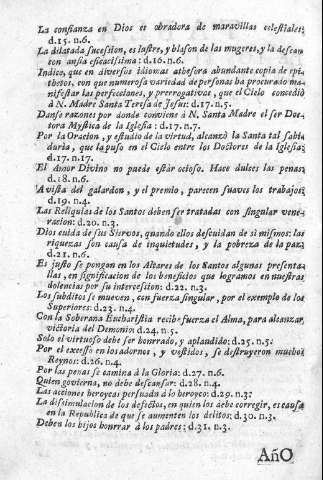 La confianza en Dios es obradora de maravillas celestiales:
d.15. n.6.
La dilatada sucession, es lustre, y blason de las mugeres, y la desean
con ansia eficacissima: d.16. n.6.
Indico, que en diversos idiomas athesora abundante copia de epi-
thetos, con que numerosa variedad de personas ha procurado ma-
nifestar las perfecciones, y prerrogativas, que el Cielo concediò
à N. Madre Santa Teresa de Jesus: d.17. n.5.
Danse razones por donde conviene à N. Santa Madre el ser Doc-
tora Mystica de la Iglesia: d.17. n.7.
Por la Oracion, y estudio de la virtud, alcanzò la Santa tal sabi-
duria, que la puso en el Cielo entre los Doctores de la Iglesia:
d.17. n.17.
El Amor Divino no puede estar ocioso. Hace dulces las penas:
d.18. n.6.
A vista del galardon, y el premio, parecen suaves los trabajos:
d.19. n.4.
Las Reliquias de los Santos deben ser tratadas con singular vene-
racion: d.20. n.3.
Dios cuida de sus Siervos, quando ellos descuidan de sì mismos: las
riquezas son causa de inquietudes, y la pobreza de la paz:
d.21. n.6.
Es justo se pongan en los Altares de los Santos algunas presenta-
llas, en significacion de los beneficios que logramos en nuestras
dolencias por su intercesion: d.22. n.3.
Los subditos se mueven, con fuerza singular, por el exemplo de los
Superiores: d.23. n.4.
Con la Soberana Eucharistia recibe fuerza el Alma, para alcanzar
victoria del Demonio: d.24. n.5.
Solo el virtuoso debe ser honrrado, y aplaudido: d.25. n.5.
Por el excesso en los adornos, y vestidos, se destruyeron muchos
Reynos: d.26. n.4.
Por las penas se camina à la Gloria: d.27. n.6.
Quien govierna, no debe descansar: d.28. n.4.
Las acciones heroycas persuada à lo heroyco: d.29. n.3.
La dissimulacion de los defectos, en quien los debe corregir, es causa
en la Republica de que se aumenten los delitos: d.30. n.3.
Deben los hijos honrrar à los padres: d.31. n.3.
AñO